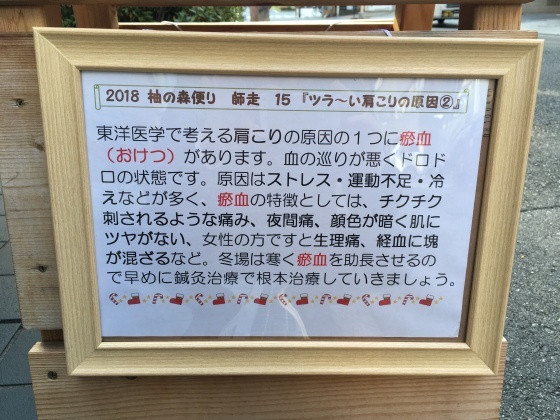 2018 柚の森便り 師走 15 『ツラ～い肩こりの原因②』
東洋医学で考える肩こりの原因の１つに瘀血
（おけつ）があります。血の巡りが悪くドロド
ロの状態です。原因はストレス・運動不足・冷
えなどが多く、瘀血の特徴としては、チクチク
刺されるような痛み、夜間痛、顔色が暗く肌に
ツヤがない、女性の方ですと生理痛、経血に塊
が混ざるなど。冬場は寒く瘀血を助長させるの
で早めに鍼灸治療で根本治療していきましょう。